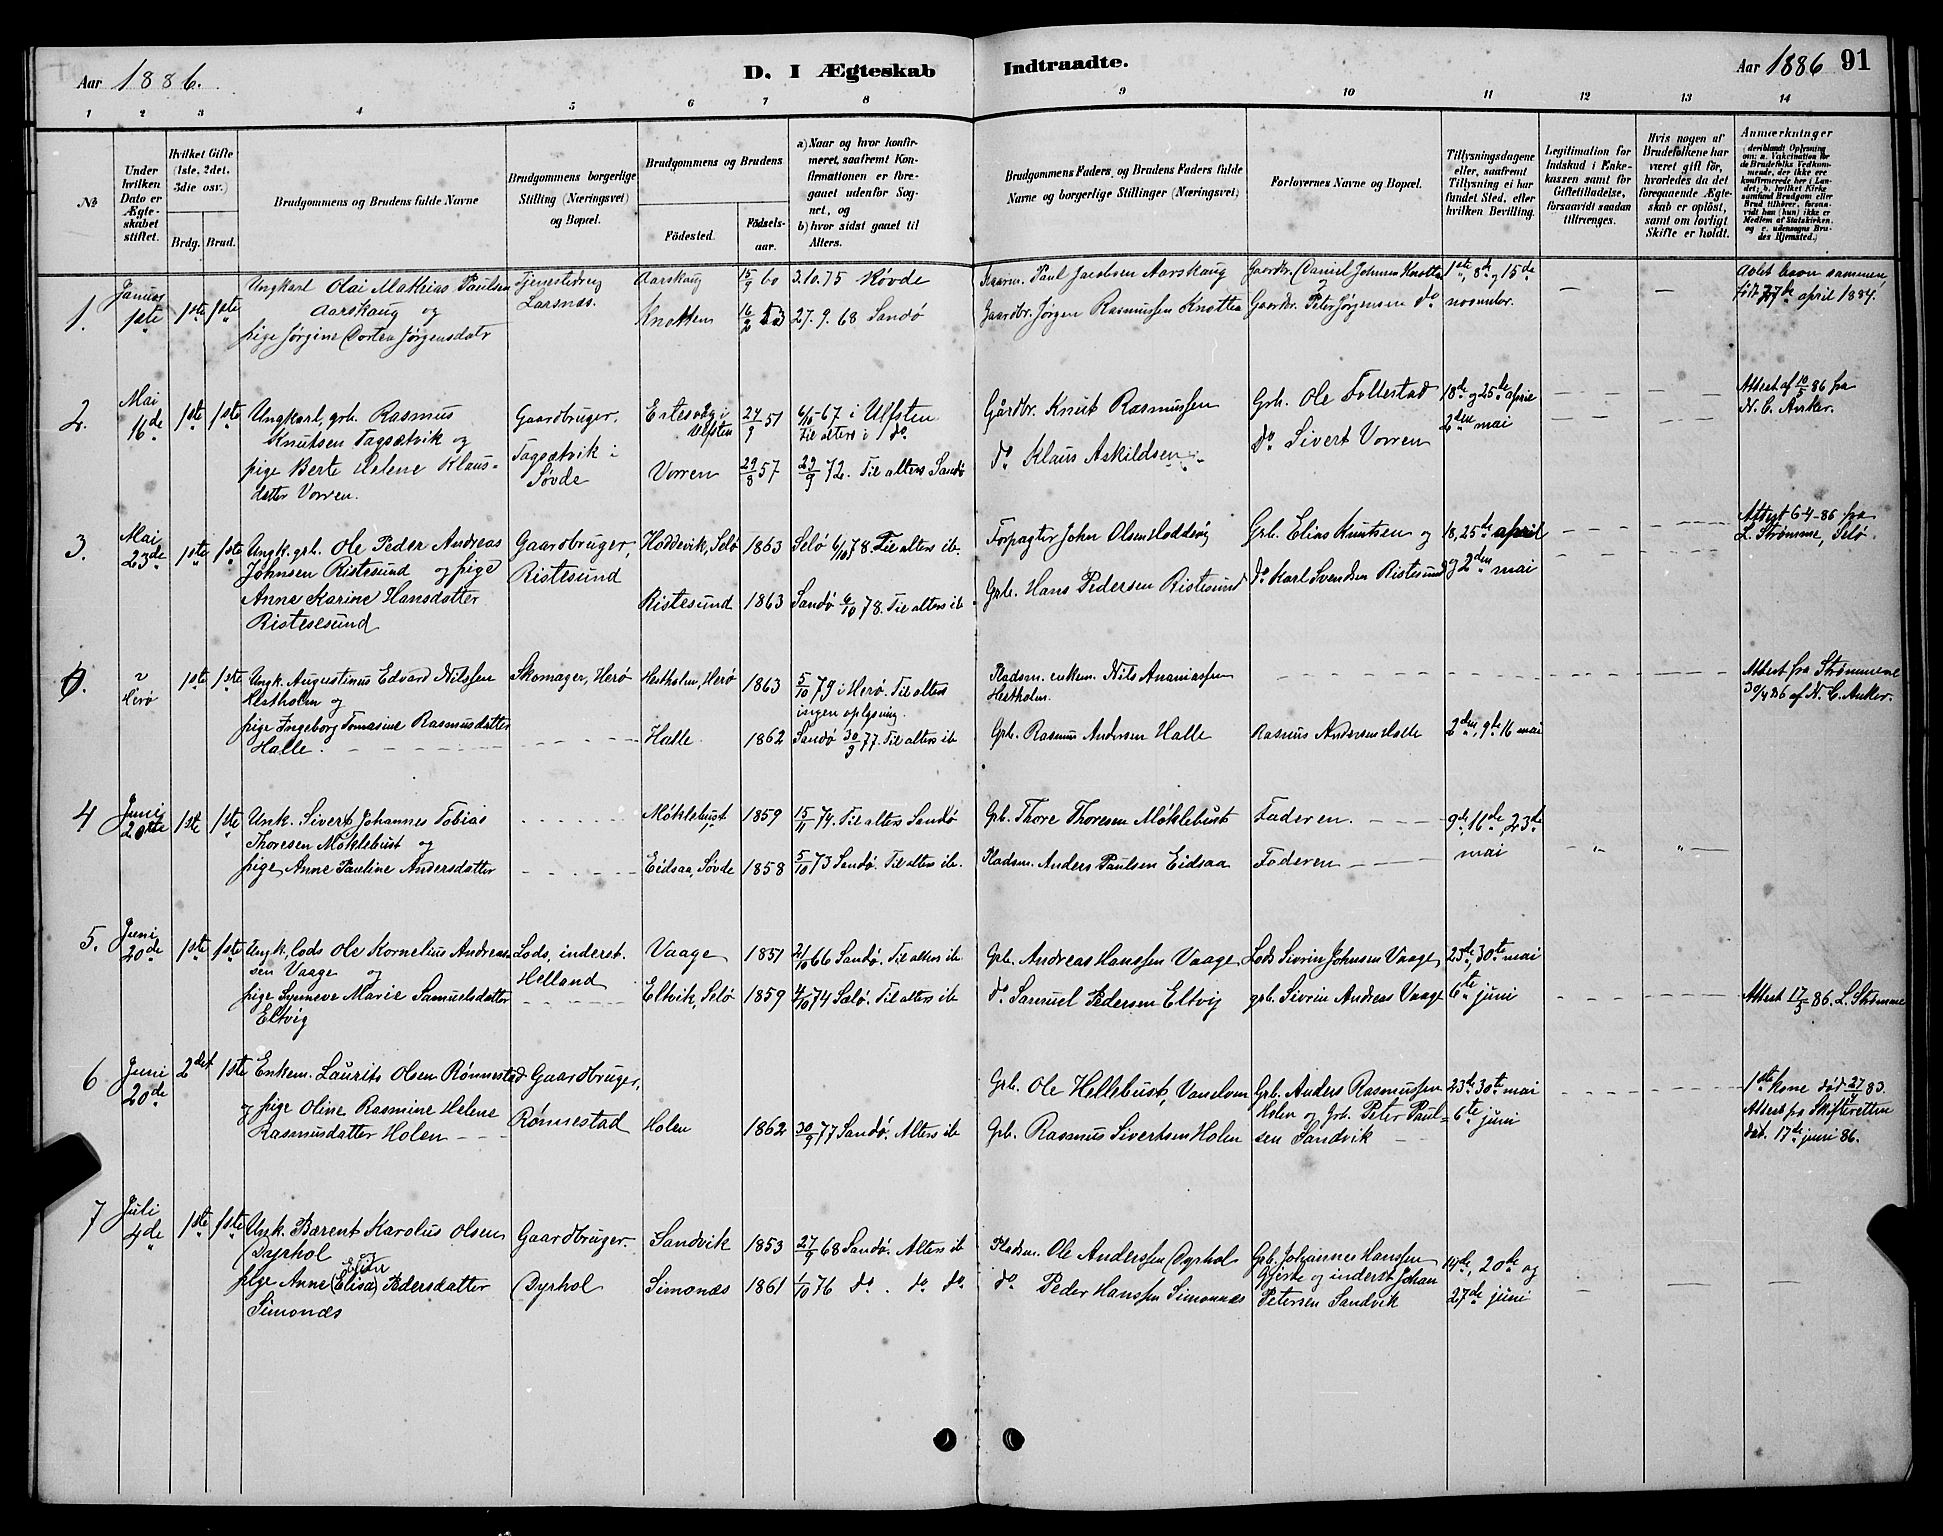 Aar 1886.
D. I Ægteskab Indtraadte.
Aar 1886 91
1 2 3 4 5 6 7 8 9 10 11 12 13 14
No
Under hvilken Dato er Ægteskabet stiftet.
Hvilket Gifte (1ste, 2det, 3die osv.)
Brdg. Brud.
Brudgommens og Brudens fulde Navne
Brudgommens borgerlige Stilling (Næringsvei) og Bopæl.
Brudgommens og Brudens
Födested. Födselsaar.
a) Naar og hvor konfirmeret, saafremt Konfirmationen er foregaaet udenför Sognet, og
b) hvor sidst gaaet til Alters.
Brudgommens Faders og Brudens Faders fulde Navne og borgerlige Stillinger (Næringsvei)
Forlovernes Navne og Bopæl.
Tillysningsdagene eller, saafremt Tillysning ei har fundet Sted, efter hvilken Bevilling.
Legitimation for Indskud i Enkekassen samt för Giftetilladelse, forsaavidt saadan tiltrænges.
Hvis nogen af Brudefolkene har været gift för, hvorledes da det foregaaende Ægteskab er oplöst, samt om lovligt Skifte er holdt.
Anmærkninger (deriblandt Oplysning om: a. Vakcination for de Brudefolks Vedkommende, der ikke ere konfirmerede her i Landet; b. hvilket Kirkesamfund Brudgom eller Brud tilhörer, forsaavidt han (hun) ikke er Medlem af Statskirken, og c. udensogns Brudes Hjemsted.)
1. Januar 1ste 1ste 1ste
Ungkarl Olai Mathias Paulsen
Aarskaug og
pige Jørgine Dortea Jørgensdatr
Tjenestedreng
Larsnes.
Aarskaug 15/9 60 3.10.75 Røvde
Knotten 16/2 53 27.9.68 Sandø
Huusm. Paul Jacobsen Aarskaug
Gaardbr. Jørgen Rasmussen Knotten
Gaardbr. Daniel Johnsen Knotten
Gaardbr. Peter Jørgensen do
1ste, 8de og 15de
novembr.
Avlet barn sammen
født 27de april 1884.
2. Mai 16de 1ste 1ste
Ungkarl, grb. Rasmus
Knutsen Tagsætvik og
pige Berte Helene Klaus-
datter Vorren.
Gaardbruger.
Tagsætvik i
Søvde
Ertesvåg i
Ulfsten 24/9 51 6/10-67 i Ulfsten
Til alters i do
Vorren 29/8 57 29/9 72. Til alters Sandø
Gårdbr. Knut Rasmussen
do Klaus Askildsen
Grb. Ole Follestad
do Sivert Vorren
18de og 25de april
2den mai
Attest af 10/5 86 fra
N. C. Anker.
3. Mai 23de 1ste 1ste
Ungk. grb. Ole Peder Andreas
Johnsen Ristesund og pige
Anne Karine Hansdatter
Ristesund
Gaardbruger,
Ristesund
Hoddevik, Selø 1863 Selø 6/10 78. Til alters ib.
Ristesund 1863 Sandø 6/10 78. Til alters ib.
Forpagter John Olsen Hoddevig
Grb. Hans Pedersen Ristesund
Grb. Elias Knutsen og
do Karl Svendsen Ristesund
18, 25de april
og 2den mai
Attest 6-4-86 fra
L. Strømme, Selø.
0. Herø 1ste 1ste
Ungk. Augustinus Edvard Nilssen
Hestholm og
pige Ingeborg Tomasine Rasmusdatter
Halle.
Skomager, Herø
Hestholm, Herø 1863 5/10 79 i Herø. Til alters
ingen oplysning.
Halle 1862 Sandø 30/9 77. Til alters ib
Pladsm. enkem. Nils Ananiassen
Hestholm.
Grb. Rasmus Andersen Halle
Rasmus Andersen Halle
2den, 9de 16 mai
Attest fra Strømmene
30/4 86 af N. C. Anker.
4 Juni 20de 1ste 1ste
Unk. Sivert Johannes Tobias
Thoresen Møklebust og
pige Anne Pauline Andersdatter
Møklebust 1859 15/11 74. Til alters Sandø
Eidsaa, Søvde 1858 5/10 73 Sandø. Til alters ib.
Grb. Thore Thoresen Møklebust
Pladsm. Anders Paulsen Eidsaa
Faderen.
Faderen
9de, 16de, 23de
mai
5. Juni 20de 1ste 1ste
Ungk. Lods Ole Kornelius Andreas-
sen Vaage og
pige Synneve Marie Samuelsdatter
Eltvig
Lods, inderst.
Helland
Vaage 1851 21/10 66 Sandø. Til alters ib
Eltvik, Selø 1859 4/10 74 Selø. Til alters ib
Grb. Andreas Hanssen Vaage
do Samuel Pedersen Eltvig
Lods Sivrin Johnsen Vaage,
grb. Sivrin Andreas Vaage
23de, 30te mai
6te juni
Attest 17/5 86. L. Strømme
6 Juni 20de 2det 1ste
Enkem. Laurits Olsen Rønnestad
og pige Oline Rasmine Helene
Rasmusdatter Holen
Gaardbruger,
Rønnestad
Holen 1862 30/9 77 Sandø. Alters ib
Grb. Ole Hellebust, Vanelven
Grb. Rasmus Sivertsen Holen
Grb. Anders Rasmussen
Holen og Grb. Peter Paul-
sen Sandvik
23de 30te mai
6te juni
1ste kone død 27/4 83.
Attest fra Skifteretten
dat. 17de juni 86.
7 Juli 4de 1ste 1ste
Ungk. Bærent Karolus Olsen
Dyrhol og
pige Anne (Elisa) Pedersdatter
Simonæs
Gaardbruger.
Dyrhol
Sandvik 1853 27/9 68 Sandø. Alters ib
Simonæs 1861 1/10 76 do. do do
Pladsm. Ole Anderssen Dyrhol
do Peder Hanssen Simonnæs
Grb. Johannes Hanssen
Gjerde og inderst Johan
Petersen Sandvik
14de, 20de og
27de juni